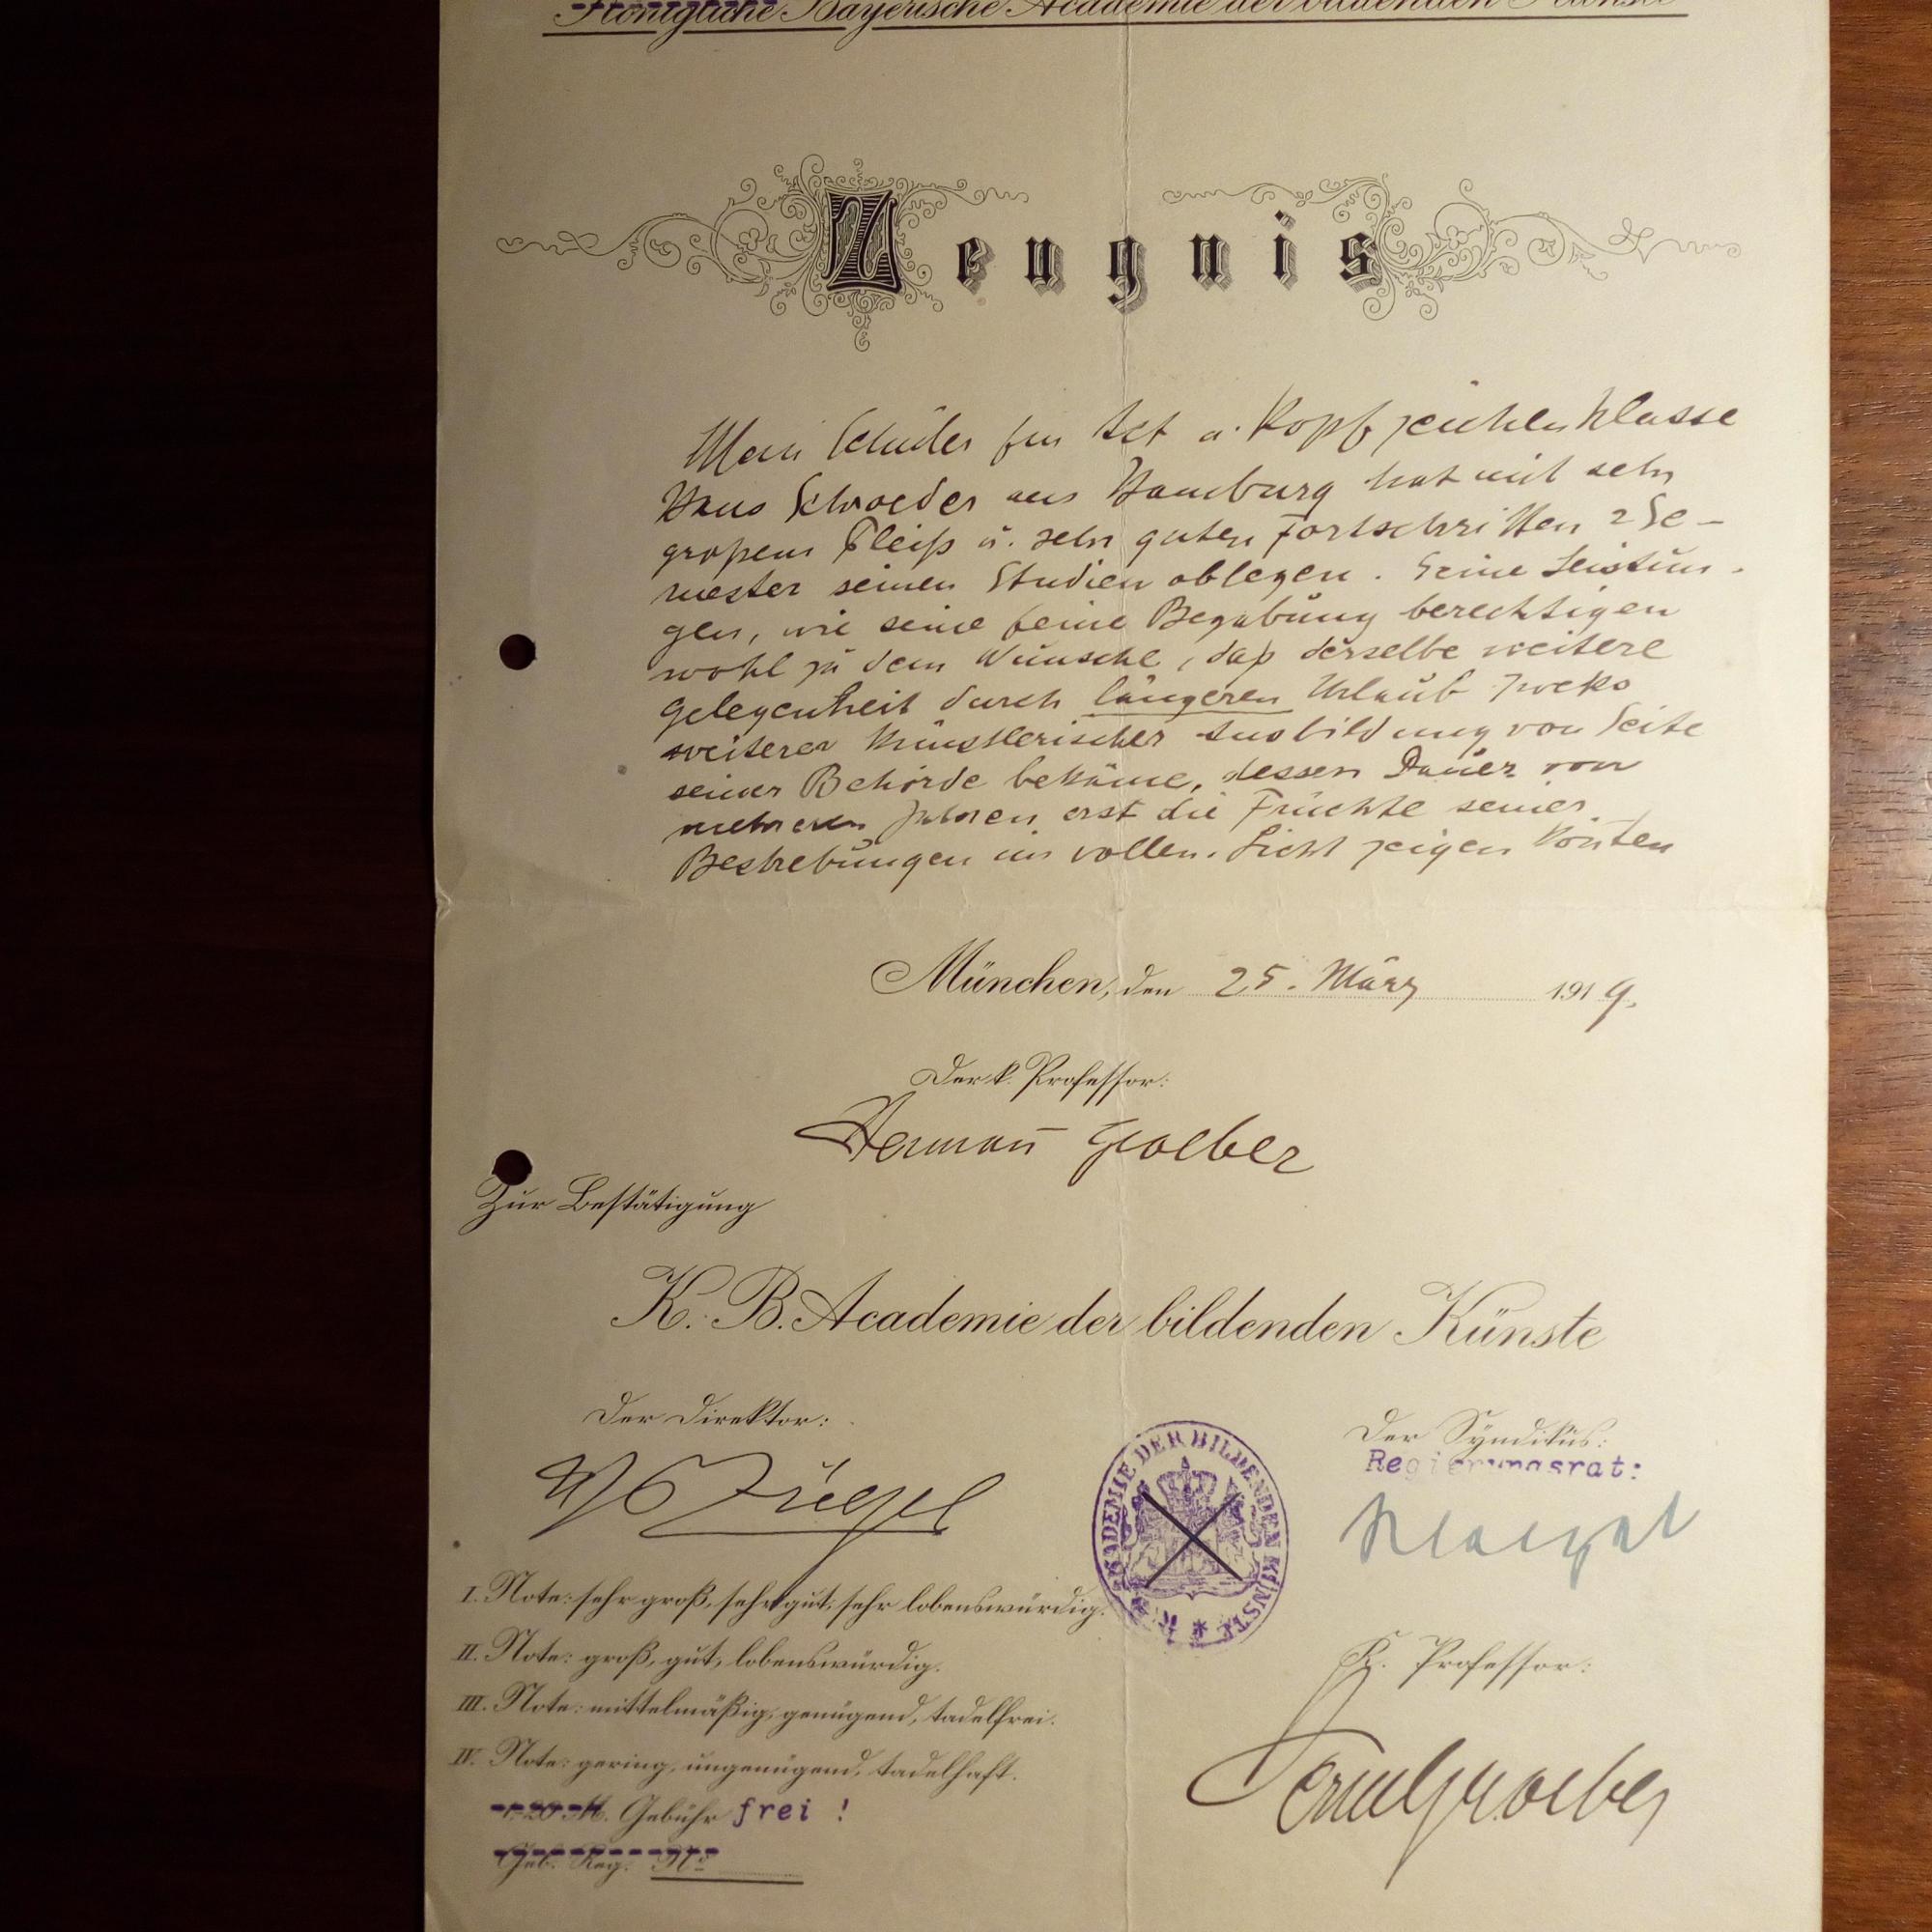 Königliche Bayerische Academie der bildenden Künste
Zeugnis
Mein Schüler der Act u. Kopfzeichenklasse
Hans Schroeder aus Hamburg hat mit sehr
großem Fleiß u. sehr guten Fortschritten 2 Se-
mester seinen Studien oblegen. Seine Leistun-
gen, wie seine feine Begabung berechtigen
wohl zu dem Wunsche, daß derselbe weitere
Gelegenheit durch längeren Urlaub zwecks
weiterer künstlerischer Ausbildung von Seite
seiner Behörde bekäme, dessen Dauer von
mehreren Jahren erst die Früchte seiner
Bestrebungen im vollen Licht zeigen könten
München, den 25. März 1919.
Der k. Professor:
Herman Groeber
Zur Bestätigung
K. B. Academie der bildenden Künste
Der Direktor:
Der Syndikus:
Regierungsrat:
AKADEMIE DER BILDENDEN KÜNSTE
I. Note: sehr groß, sehr gut, sehr lobenswürdig.
II. Note: groß, gut, lobenswürdig.
K. Professor:
III. Note: mittelmäßig, genügend, tadelfrei.
IV. Note: gering, ungenügend, tadelhaft.
Groeber
M. Gebühr frei !
Geb. Reg. No